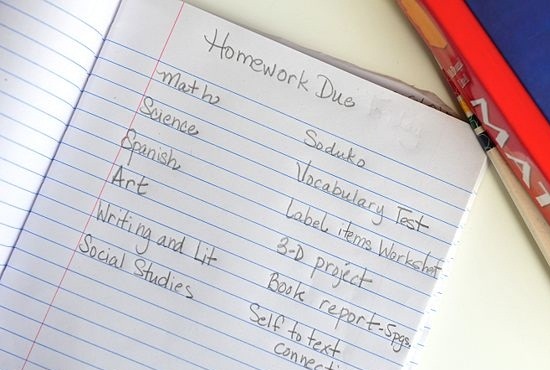 Homework Due
Math Soduko
Science Vocabulary Test
Spanish Label items Workshet
Art 3-D project
Writing and Lit Book report-5pgs.
Social Studies Self to text
MAT